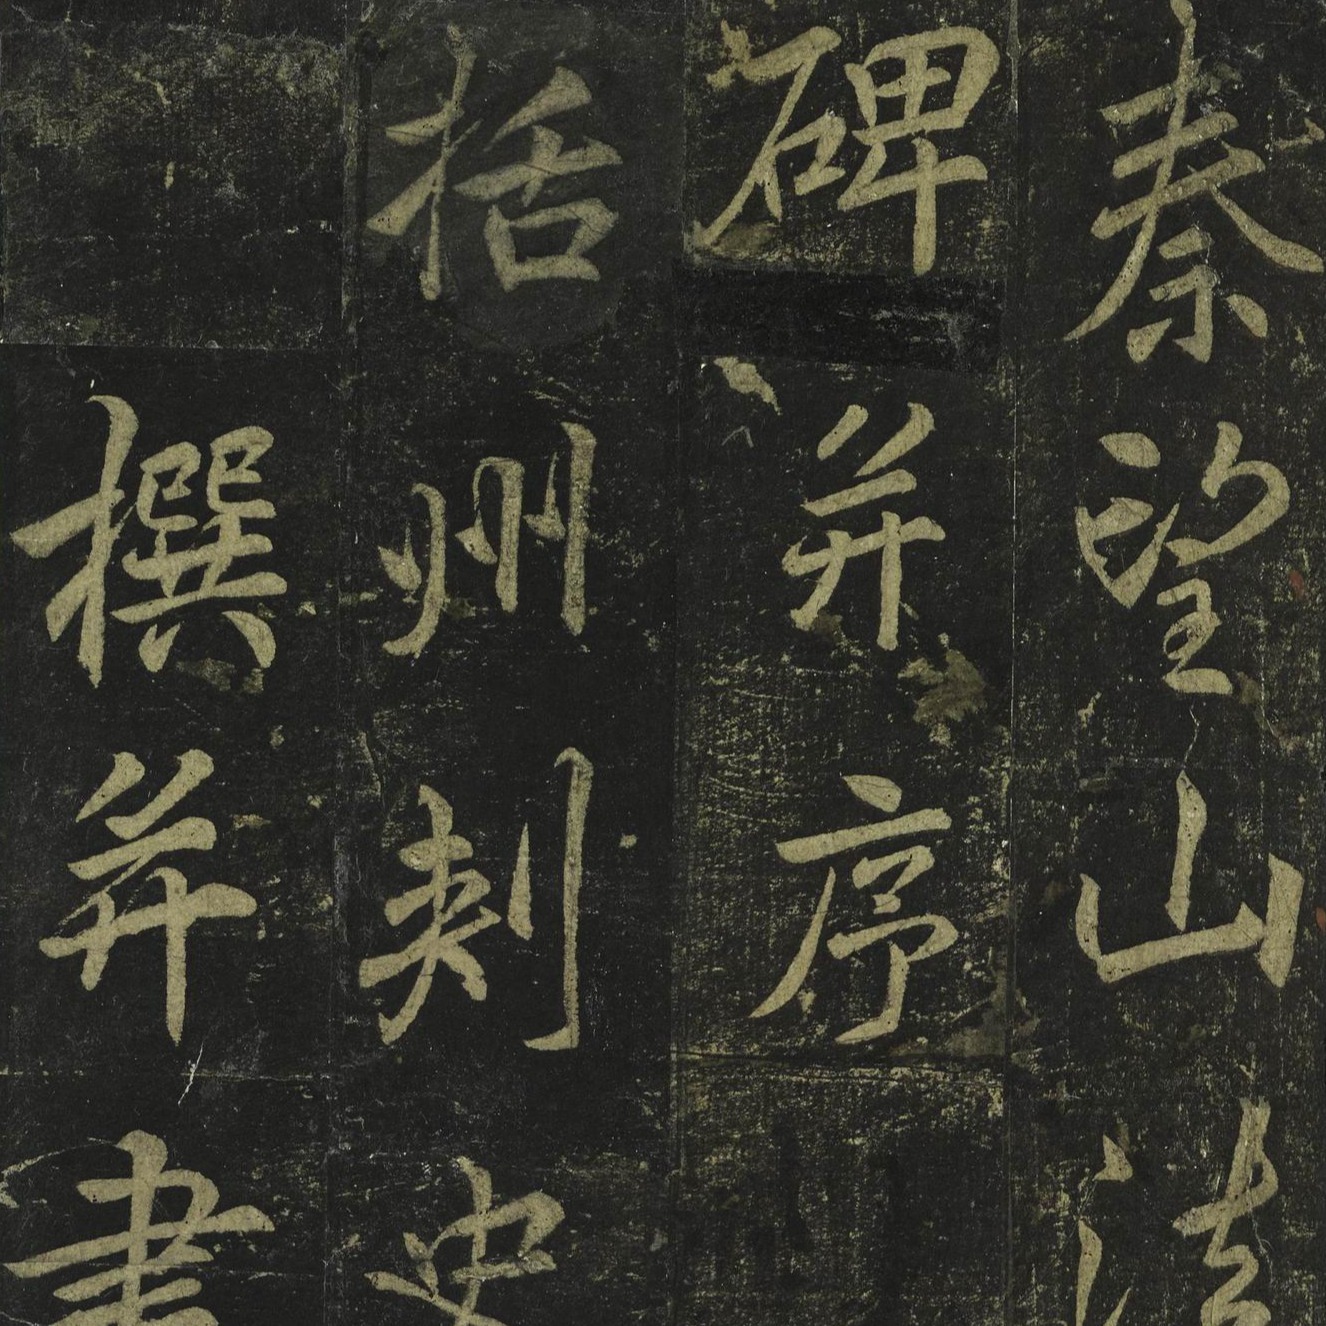 秦望山法
碑并序
括州刺史
撰并書